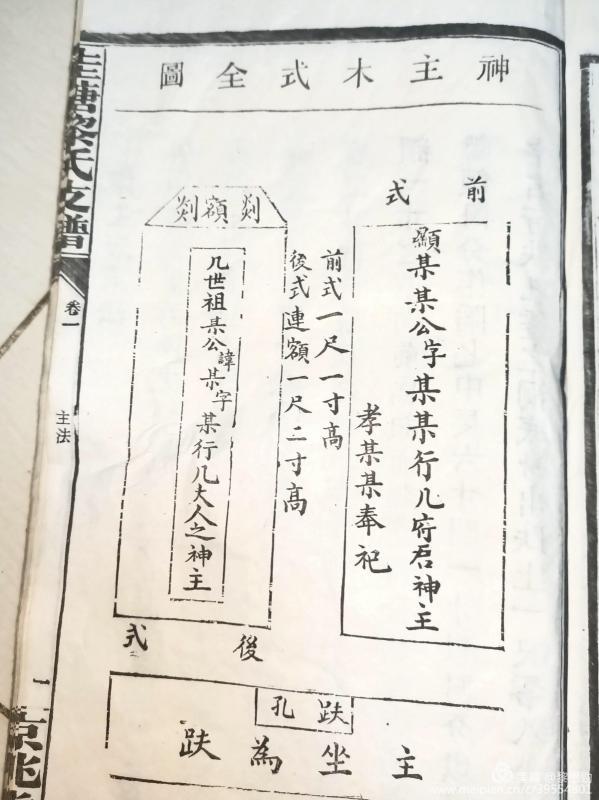 神主木式全圖
前式
顯某某公字某某行几府君神主
孝某某奉祀
前式一尺一寸高
後式連額一尺二寸高
剡額剡
几世祖某公諱某字某行几大人之神主
後式
趺孔
主坐為趺
黎氏支譜
卷一
主法
一
京兆
美篇
www.meipian.cn/c/39554801